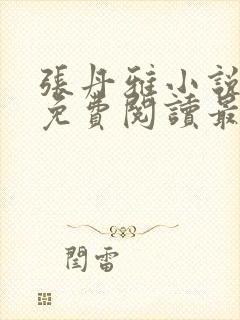 張丹雅小說
免費閱讀最
閆雷